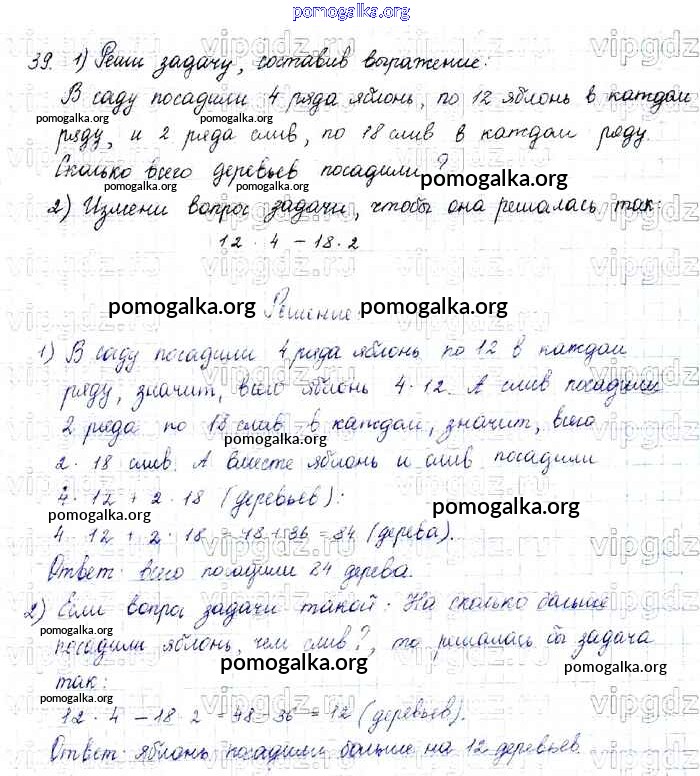 pomogalka.org
39. 1) Реши задачу, составив выражение:
В саду посадили 4 ряда яблонь, по 12 яблонь в каждом
pomogalka.org pomogalka.org
ряду, и 2 ряда слив, по 18 слив в каждом ряду.
Сколько всего деревьев посадили?
pomogalka.org pomogalka.org
2) Измени вопрос задачи, чтобы она решалась так:
12 · 4 - 18 · 2
pomogalka.org Решение: pomogalka.org
1) В саду посадили 4 ряда яблонь по 12 в каждом
ряду, значит, всего яблонь 4 · 12. А слив посадили
2 ряда по 18 слив в каждом, значит, всего
pomogalka.org
2 · 18 слив. А вместе яблонь и слив посадили
4 · 12 + 2 · 18 (деревьев):
pomogalka.org pomogalka.org
4 · 12 + 2 · 18 = 48 + 36 = 84 (дерева).
Ответ: всего посадили 84 дерева.
2) Если вопрос задачи такой: На сколько больше
pomogalka.org
посадили яблонь, чем слив?, то решалась бы задача
pomogalka.org
так:
pomogalka.org
12 · 4 - 18 · 2 = 48 - 36 = 12 (деревьев).
pomogalka.org
Ответ: яблонь посадили больше на 12 деревьев.
vipgdz.ru